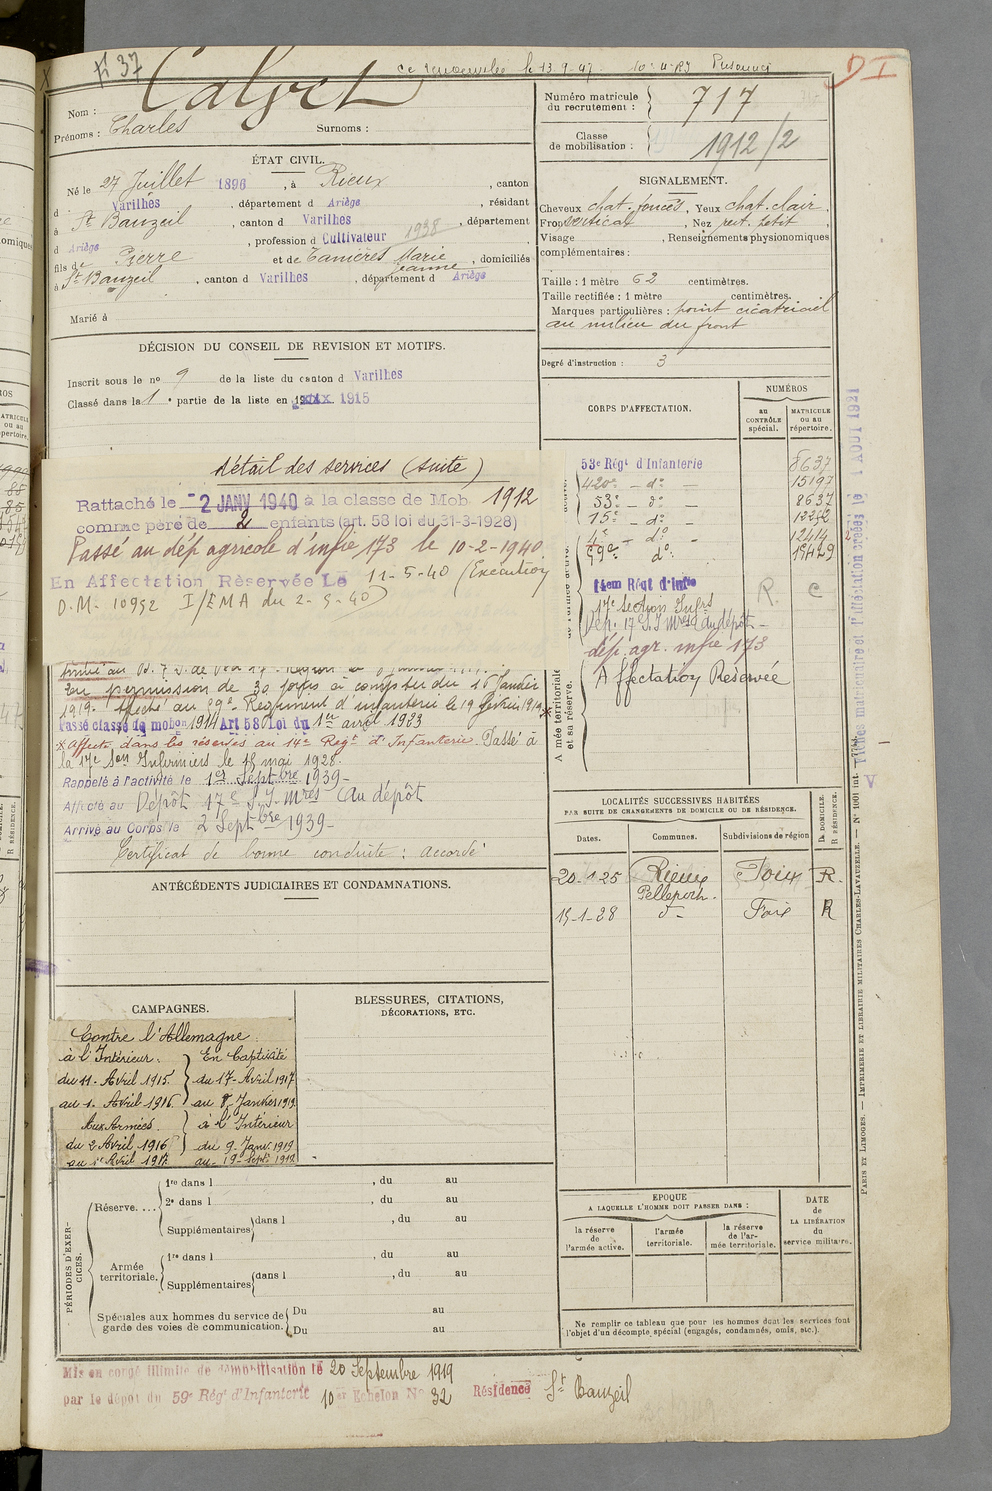 37
le 13-9-47
DI
Nom : Calvet
Prénoms : Charles Surnoms :
Numéro matricule du recrutement : 717
Classe de mobilisation : 1912/2
ÉTAT CIVIL.
Né le 27 Juillet 1896, à Rieux, canton
d Varilhes, département d Ariège, résidant
à St Bauzeil, canton d Varilhes, département
d Ariège, profession d Cultivateur 1938
fils de Pierre et de Tanières Marie Jeanne, domiciliés
à St Bauzeil, canton d Varilhes, département d Ariège
Marié à
SIGNALEMENT.
Cheveux chat. foncés, Yeux chat. clair,
Front vertical, Nez rect. petit,
Visage , Renseignements physionomiques
complémentaires :
Taille : 1 mètre 62 centimètres.
Taille rectifiée : 1 mètre centimètres.
Marques particulières : point cicatriciel
au milieu du front
Degré d'instruction : 3
DÉCISION DU CONSEIL DE REVISION ET MOTIFS.
Inscrit sous le no 9 de la liste du canton d Varilhes
Classé dans la 1 e partie de la liste en 1915
détail des services (suite)
Rattaché le -2 JANV 1940 à la classe de Mob. 1912
comme père de 2 enfants (art. 58 loi du 31-3-1928)
Passé au dép agricole d'infie 173 le 10-2-1940.
En Affectation Réservée Le 11-5-40 (Exécution
D.M. 10952 I/EMA du 2-5-40)
permission de 30 jours à compter du 10 Janvier
1919. Affecté au 59e Régiment d'infanterie le 19 février 1919
Passé classe de mobon 1914 Art 58 Loi du 1er avril 1923
* affecté dans les réserves au 14e Régt d'Infanterie. Passé à
la 17e Son Infirmiers le 15 mai 1928.
Rappelé à l'activité le 1er Septbre 1939-
Affecté au Dépôt 17e S.I.Mres (du dépôt
Arrivé au Corps le 2 Septbre 1939-
Certificat de bonne conduite : accordé
CORPS D'AFFECTATION.
NUMÉROS
au CONTRÔLE spécial.
MATRICULE ou au répertoire.
53e Régt d'Infanterie 8637
420e - do - 15197
53e - do - 8637
15e - do - 12252
4e - do - 12414
59e do 19429
14em Régt d'Infie
17e Section Infrs
Dép. 17 S.I Mres (du dépôt -
dép. agr. infie 173
Affectation Réservée
R. C
Armée territoriale et sa réserve.
ANTÉCÉDENTS JUDICIAIRES ET CONDAMNATIONS.
LOCALITÉS SUCCESSIVES HABITÉES
PAR SUITE DE CHANGEMENTS DE DOMICILE OU DE RÉSIDENCE.
Dates. Communes. Subdivisions de région D. DOMICILE. R. RÉSIDENCE.
20-1-25 Rieux Pelleport. Foix R.
15-1-28 do - Foix R
CAMPAGNES.
Contre l'Allemagne.
à l'Intérieur :
du 11 Avril 1915.
au 1. Avril 1916.
Aux Armées.
du 2 Avril 1916
au 1er Avril 1917.
En Captivité
du 17 Avril 1917
au 8 Janvier 1919.
à l'Intérieur
du 9 Janv. 1919
au 19 Septe 1919
BLESSURES, CITATIONS,
DÉCORATIONS, ETC.
PÉRIODES D'EXERCICES.
Réserve....
1re dans l , du au
2e dans l , du au
Supplémentaires dans l , du au
Armée territoriale.
1re dans l , du au
Supplémentaires dans l , du au
Spéciales aux hommes du service de garde des voies de communication.
Du au
Du au
EPOQUE
A LAQUELLE L'HOMME DOIT PASSER DANS :
la réserve de l'armée active.
l'armée territoriale.
la réserve de l'armée territoriale.
DATE de LA LIBÉRATION du service militaire.
Ne remplir ce tableau que pour les hommes dont les services font
l'objet d'un décompte spécial (engagés, condamnés, omis, etc.).
Mis en congé illimité de démobilisation le 20 Septembre 1919
par le dépôt du 59e Régt d'Infanterie 10er Echelon No 32 Résidence St Bauzeil
PARIS ET LIMOGES. — IMPRIMERIE ET LIBRAIRIE MILITAIRES CHARLES-LAVAUZELLE. — No 1001 int.
Fiches matriculaire et d'affectation créées le 1 AOUT 1921